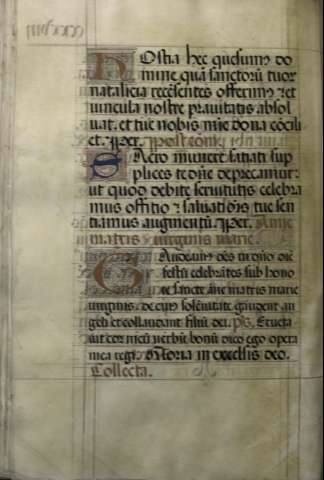 Hostia hec quesumus do
mine quā sanctorū tuor
natalicia recēsentes offerim⁹ ⁊ et
uincula nostre prauitatis absol
uat. et tue nobis mīe dona cōcili
et. Per. Postcom̄.
Sacro munere satiati sup
plices te dn̄e deprecamur:
ut quod debite seruitutis celebra
mus offitio ⁊ saluatiōis tue sen
tiamus augmentū. Per. Anne
matris ⁊ uirginis marie.
Gaudeam⁹ oēs in dn̄o diē
festū celebrātes sub hono
re sancte āne matris marie
uirginis: de cui⁹ solēnitate gaudent an
geli et collaudant filiū dei. ps. Eructa
uit cor meū uerbū bonū dico ego opera
mea regi. Gloria in excelsis deo.
Collecta.